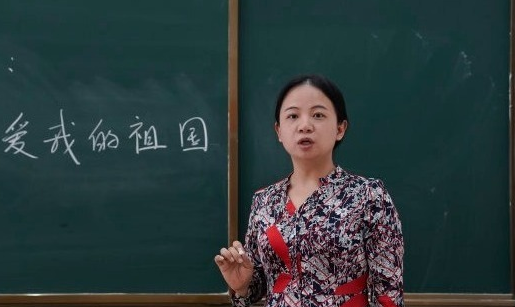 :
爱我的祖国